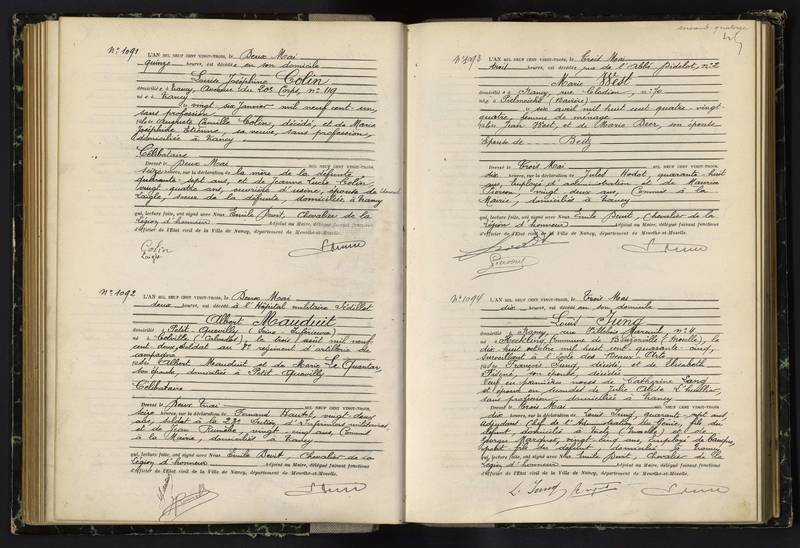 N° 1091
L'AN MIL NEUF CENT VINGT-TROIS, le Deux Mai
quinze heures, est décédée en son domicile
Louise Joséphine Colin
domiciliée à Nancy, Avenue du 20e Corps, n° 119
née à Nancy
le vingt six Janvier mil neuf cent un,
sans profession
fille de Auguste Camille Colin, décédé, et de Marie
Joséphine Etienne, sa veuve, sans profession,
domiciliée à Nancy
Célibataire
Dressé le Deux Mai MIL NEUF CENT VINGT-TROIS,
seize heures, sur la déclaration de la mère de la défunte
sept ans, et de Jeanne Lucie Colin
vingt quatre ans, ouvrière d'usine, épouse de
Laigle, sœur de la défunte, domiciliée à Nancy
qui, lecture faite, ont signé avec Nous, Emile Chevalier de la
Légion d'honneur Adjoint au Maire, délégué faisant fonctions
d'Officier de l'Etat civil de la Ville de Nancy, département de Meurthe-et-Moselle.
Colin
Laigle
N° 1092
L'AN MIL NEUF CENT VINGT-TROIS, le Deux Mai
deux heures, est décédé à l'Hôpital militaire Sédillot
Albert Mauduit
domicilié à Petit-Quevilly (Seine-Inférieure)
né à (Calvados), le trois août mil neuf
cent deux, soldat au 8e régiment d'artillerie de
campagne
fils de Albert Mauduit et de Marie Le
son épouse, domiciliés à Petit Quevilly
Célibataire
Dressé le Deux Mai MIL NEUF CENT VINGT-TROIS,
seize heures, sur la déclaration de Fernand vingt deux
ans, soldat à la 23e Section d'Infirmiers militaires
et de Jean vingt ans, Commis
à la Mairie, domiciliés à Nancy
qui, lecture faite, ont signé avec Nous, Emile Chevalier de la
Légion d'honneur Adjoint au Maire, délégué faisant fonctions
d'Officier de l'Etat civil de la Ville de Nancy, département de Meurthe-et-Moselle.
N° 1093
L'AN MIL NEUF CENT VINGT-TROIS, le Trois Mai
trois heures, est décédée rue de l'Abbé Didelot, n° 2
Marie West
domiciliée à Nancy, rue n° 70
née à (Bavière)
le six avril mil huit cent quatre-vingt
quatre, femme de ménage
fille de Jean West, et de Marie Beer, son épouse
Epouse de Beitz
Dressé le Trois Mai MIL NEUF CENT VINGT-TROIS,
dix heures, sur la déclaration de Jules Hodot, quarante huit
ans, employé d'administration et de Maurice
vingt deux ans, Commis à la
Mairie, domiciliés à Nancy
qui, lecture faite, ont signé avec Nous, Emile Chevalier de la
Légion d'honneur Adjoint au Maire, délégué faisant fonctions
d'Officier de l'Etat civil de la Ville de Nancy, département de Meurthe-et-Moselle.
N° 1094
L'AN MIL NEUF CENT VINGT-TROIS, le Trois Mai
dix heures, est décédé en son domicile
Louis Jung
domicilié à Nancy, rue Villebois Mareuil, n° 4
né à Commune de (Moselle), le
dix huit octobre mil huit cent quarante neuf,
surveillant à l'école des Beaux-Arts
fils de François Jung, décédé, et de Elisabeth
son épouse, décédée
Veuf en premières noces de Catherine Lang
et époux en secondes de
sans profession, domiciliée à Nancy
Dressé le Trois Mai MIL NEUF CENT VINGT-TROIS,
dix heures, sur la déclaration de Louis Jung, quarante sept ans
adjudant Chef de l'Administration du Génie, fils du
défunt, domicilié à et de
Georges vingt cinq ans, employé de banque,
petit fils du défunt, domicilié à Nancy
qui, lecture faite, ont signé avec Nous, Emile Chevalier de la
Légion d'honneur Adjoint au Maire, délégué faisant fonctions
d'Officier de l'Etat civil de la Ville de Nancy, département de Meurthe-et-Moselle.
L. Jung